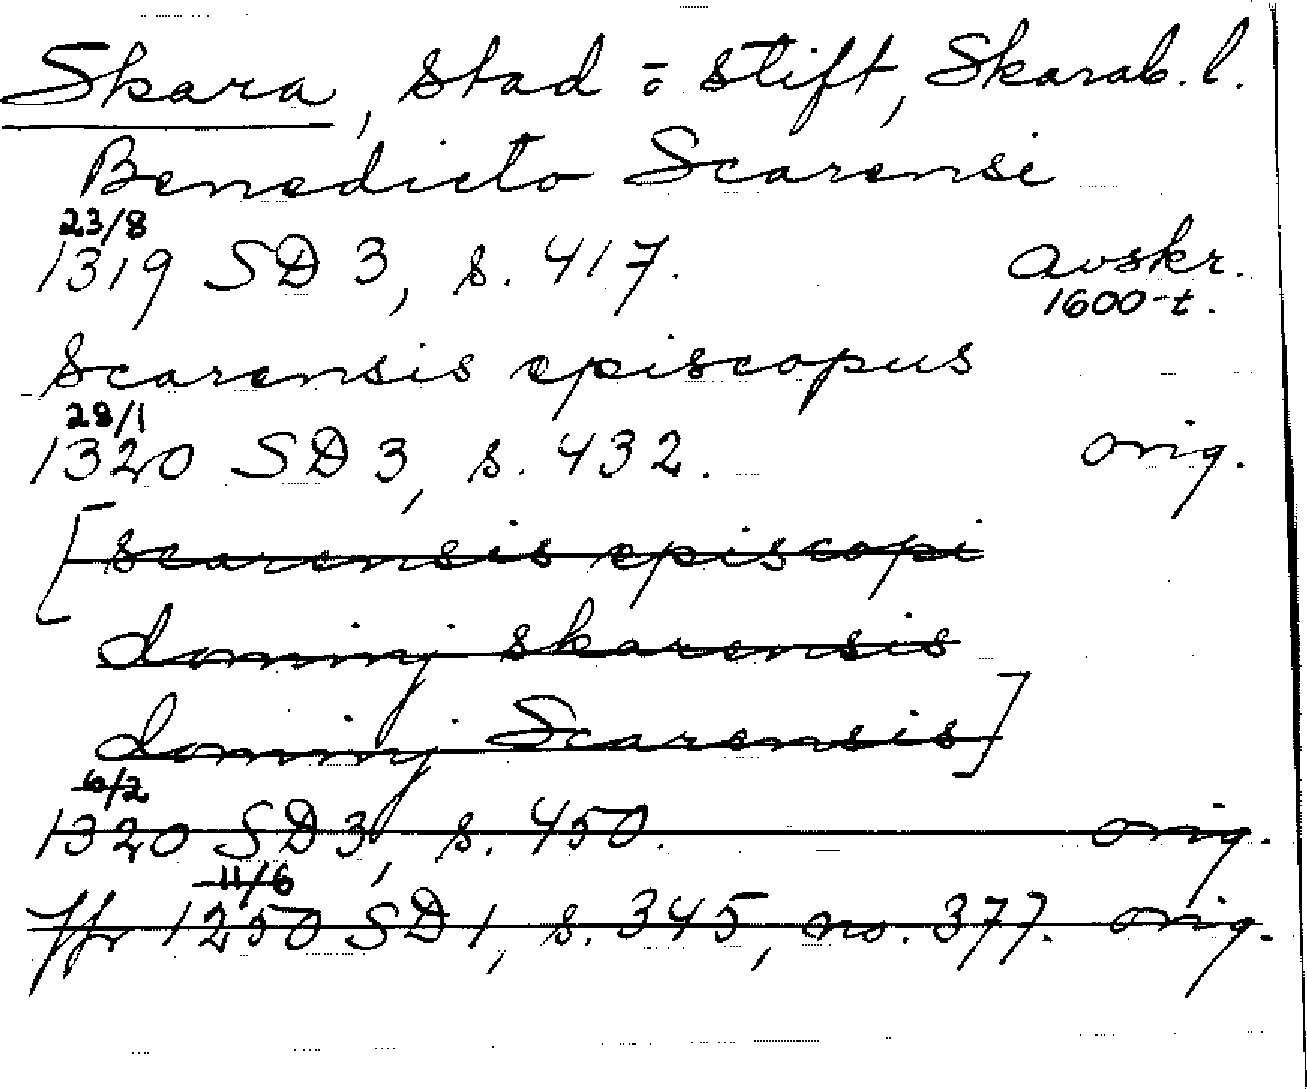 Skara, stad = stift, Skarab. l.
Benedicto Scarensi
23/8
1319 SD 3, s. 417. avskr.
1600-t.
Scarensis episcopus
28/1
1320 SD 3, s. 432. orig.
[scarensis episcopi
dominj skarensis
dominj Scarensis]
6/2
1320 SD 3, s. 450. orig.
11/6
Jfr 1250 SD 1, s. 345, no. 377. orig.